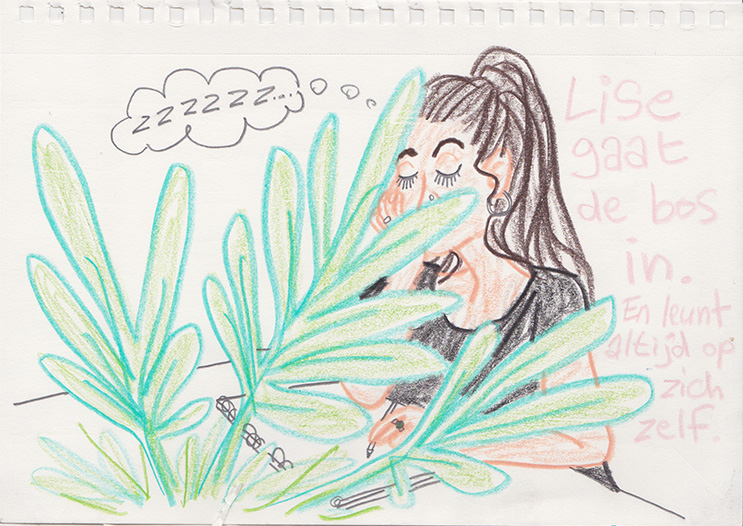 zzzzzz....
Lise
gaat
de bos
in.
En leunt
altijd op
zich
zelf.